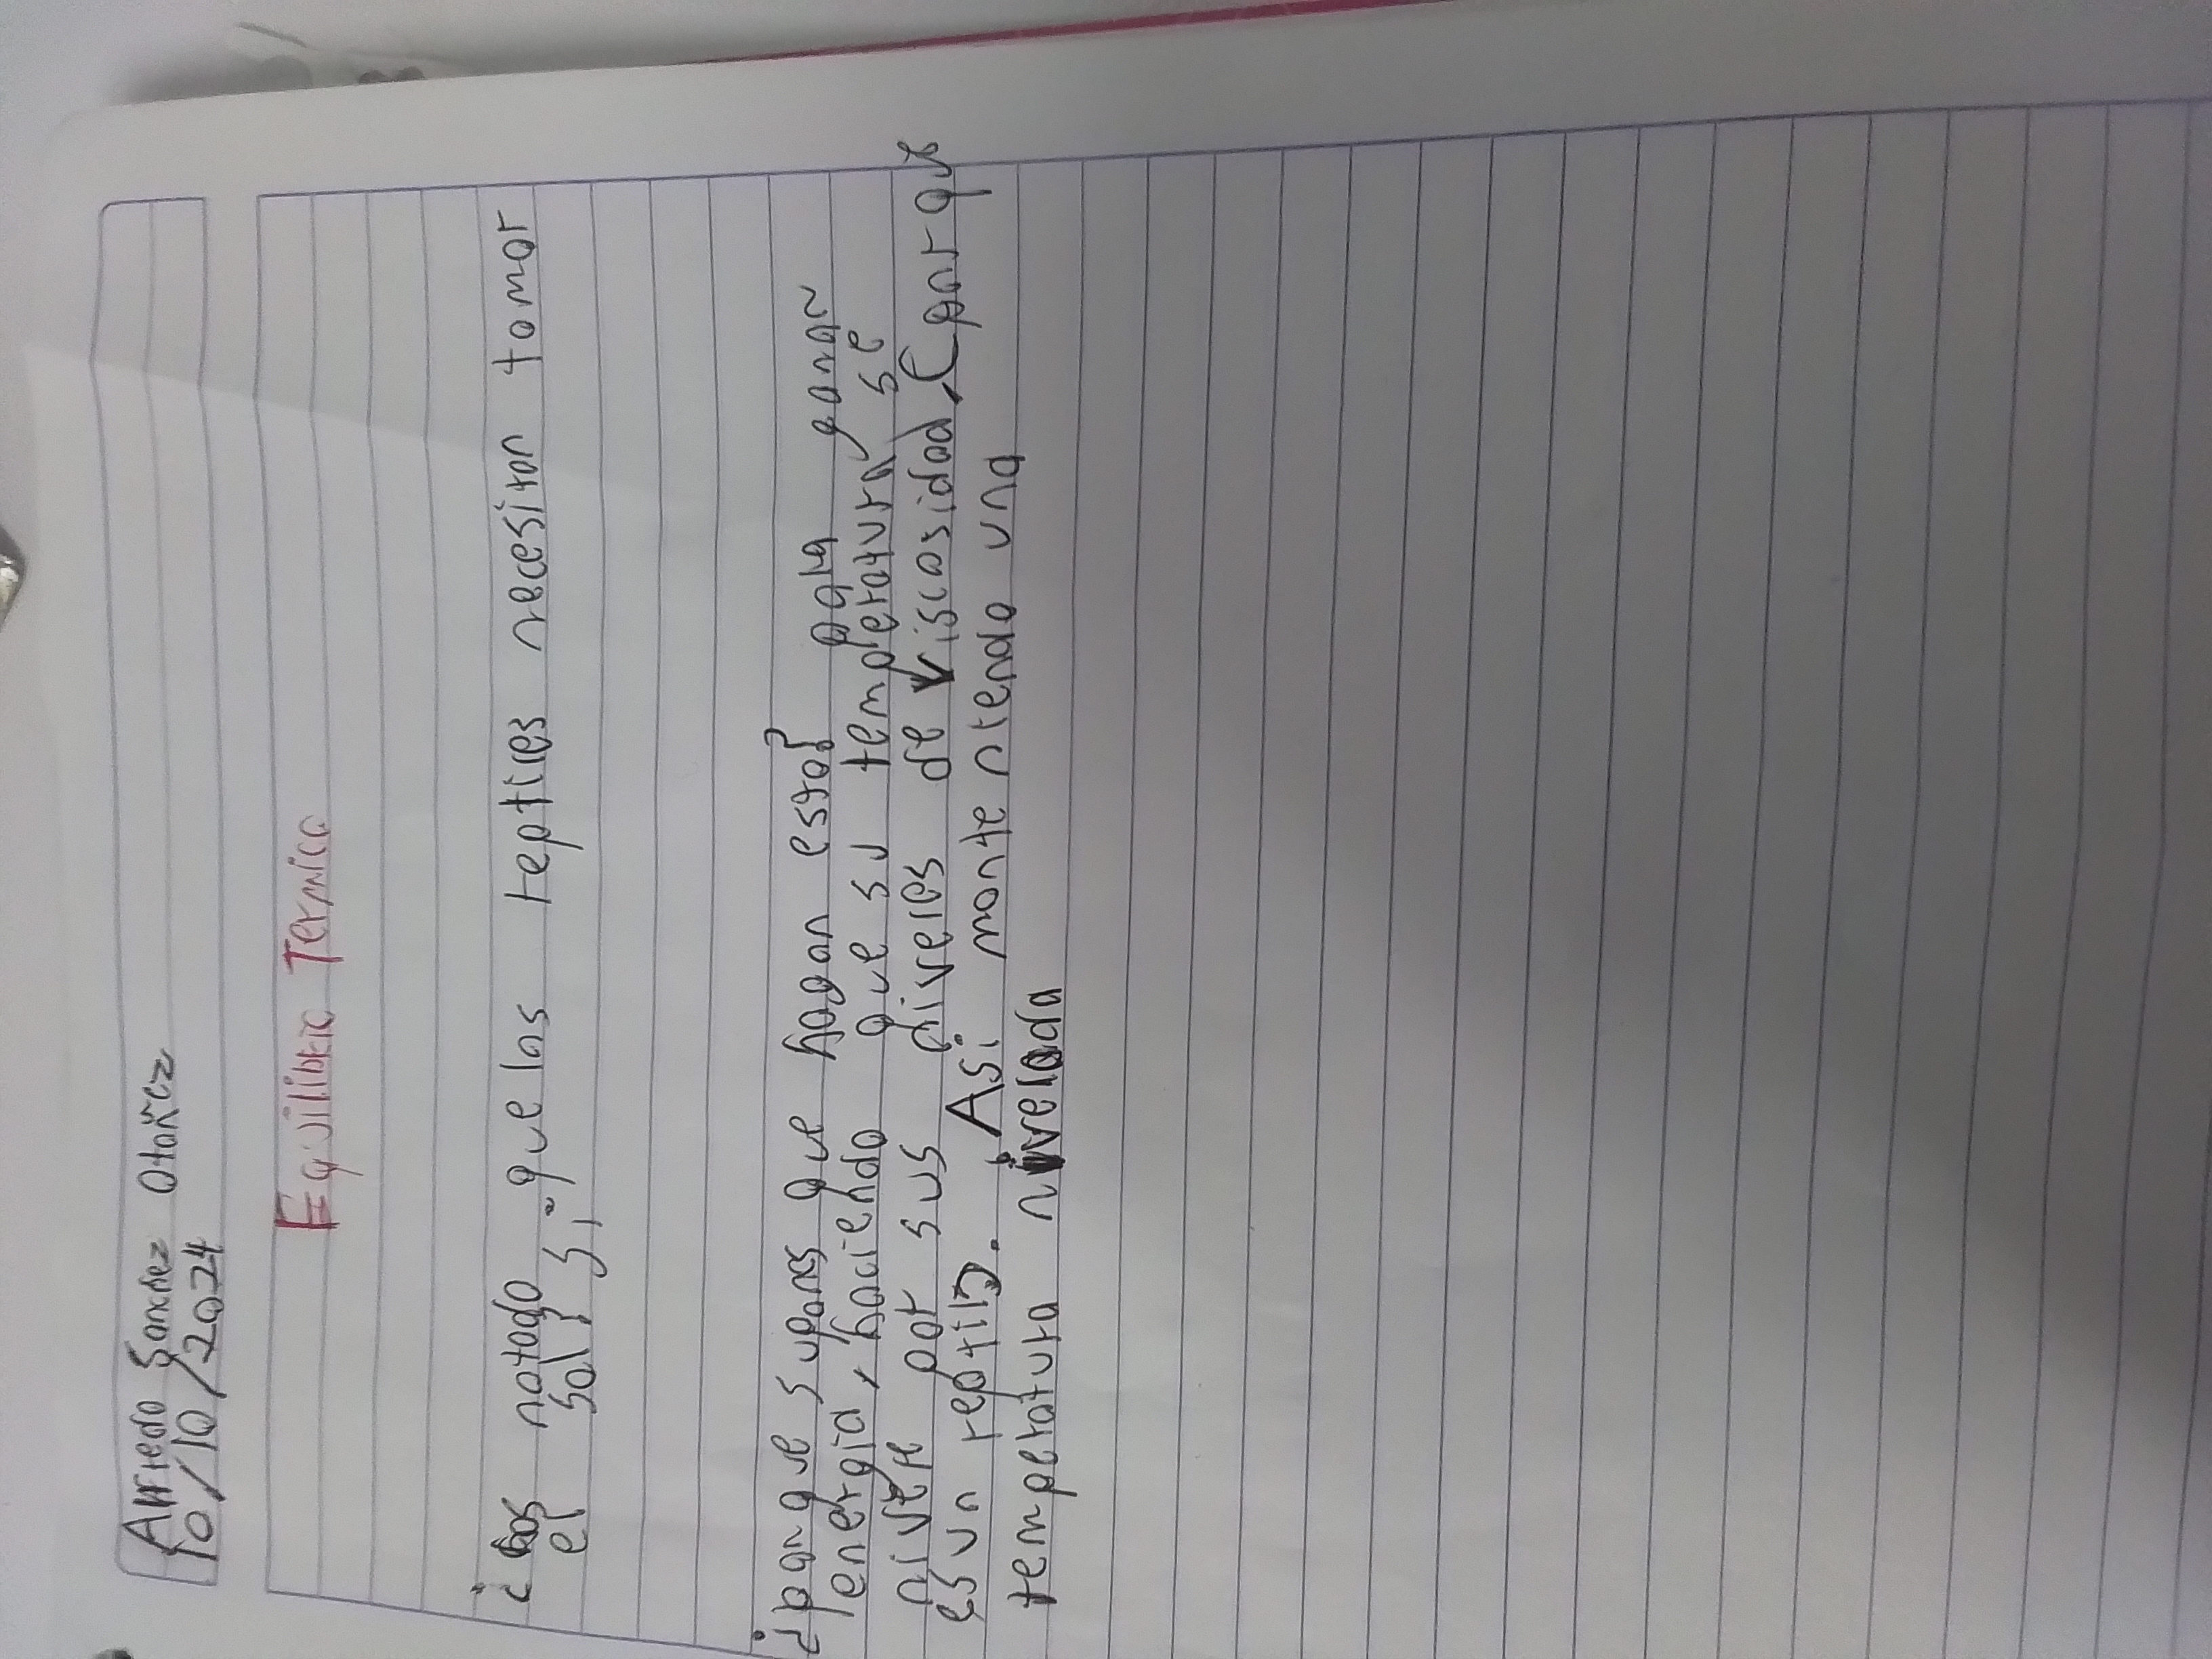 Alfredo Sanchez Otañez
10/10/2024
Equilibrio Termico
¿has notado que los reptiles necesitan tomar
el sol? Si
¿porque supones que hagan esto? para ganar
energia, haciendo que su temperatura se
nivele por sus niveles de viscosidad, (porque
es un reptil). Asi mante niendo una
temperatura nivelada